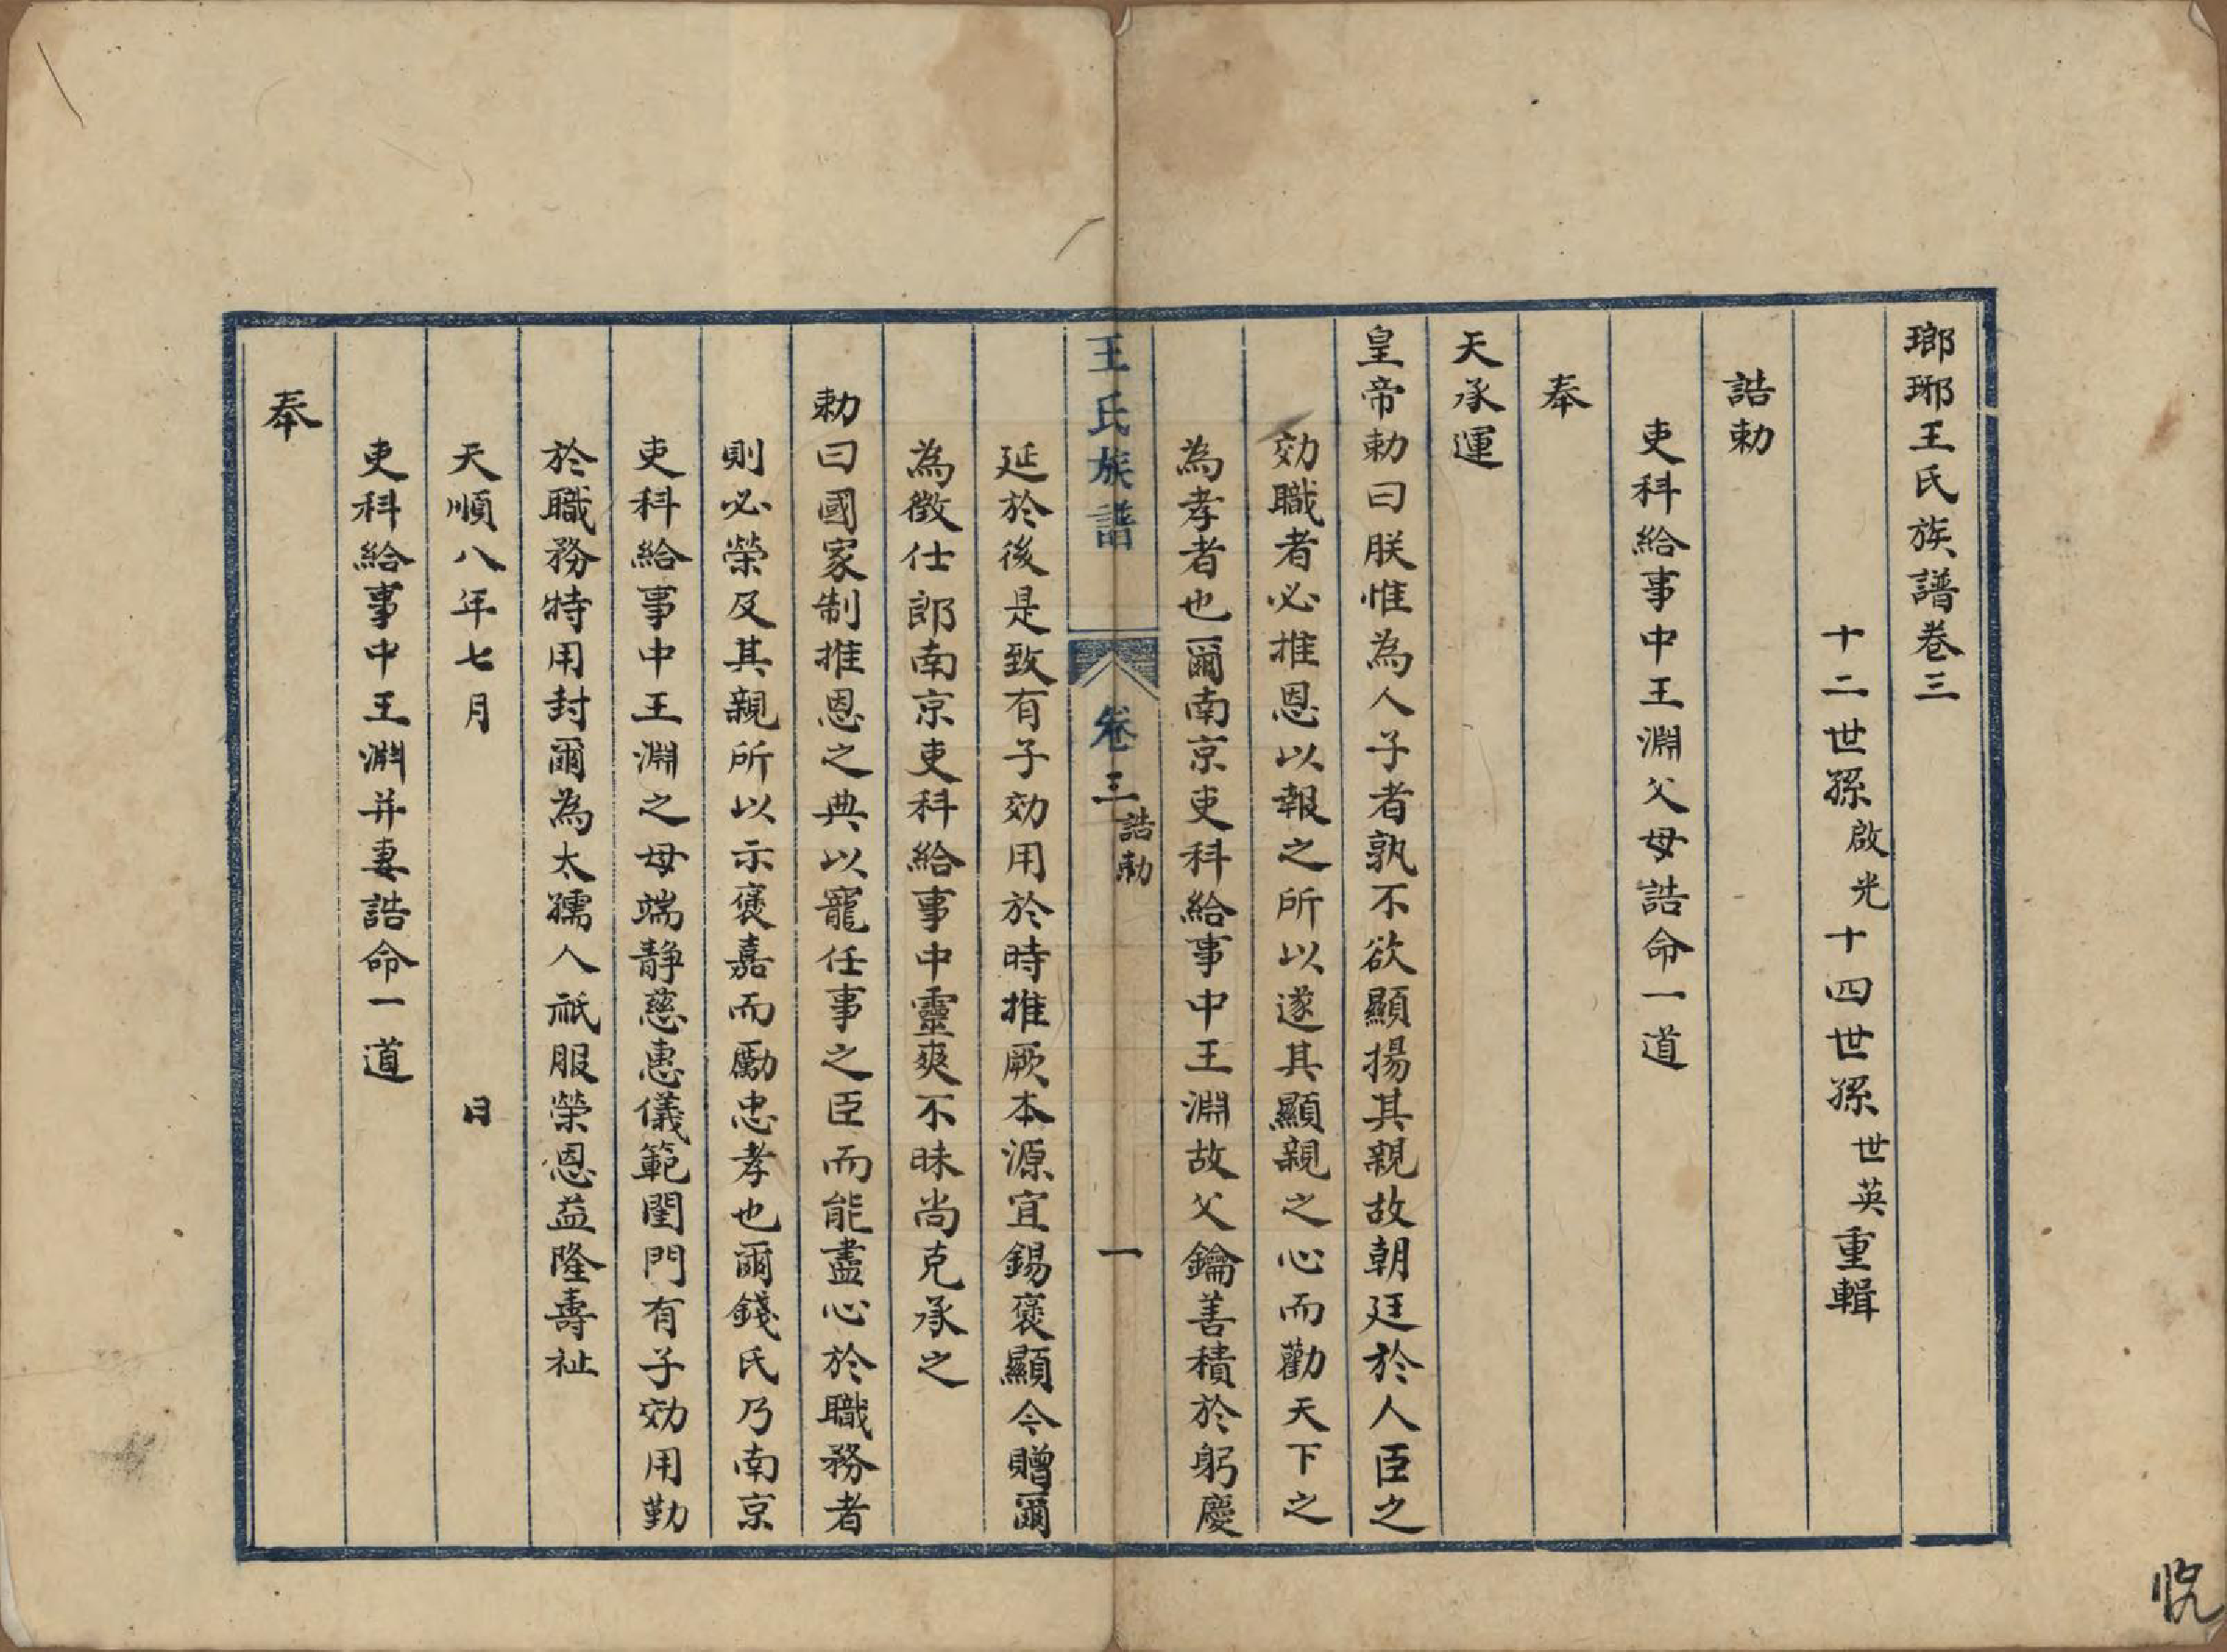 瑯琊王氏族譜卷三
十二世孫啟光十四世孫世英重輯
誥勅
吏科給事中王淵父母誥命一道
奉
天承運
皇帝勅曰朕惟為人子者孰不欲顯揚其親故朝廷於人臣之
効職者必推恩以報之所以遂其顯親之心而勸天下之
為孝者也爾南京吏科給事中王淵故父鑰善積於躬慶
王氏族譜 卷三 誥勅 一
延於後是致有子効用於時推厥本源宜錫褒顯今贈爾
為徵仕郎南京吏科給事中靈爽不昧尚克承之
勅曰國家制推恩之典以寵任事之臣而能盡心於職務者
則必榮及其親所以示褒嘉而勵忠孝也爾錢氏乃南京
吏科給事中王淵之母端靜慈惠儀範閨門有子効用勤
於職務特用封爾為太孺人祇服榮恩益隆壽祉
天順八年七月 日
吏科給事中王淵并妻誥命一道
奉